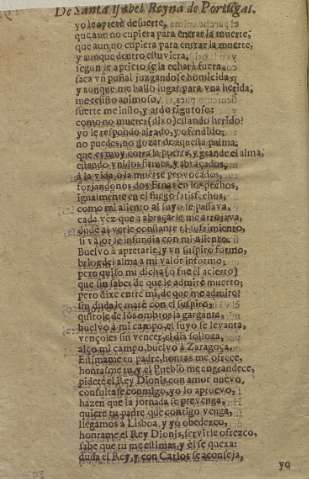 De Santa Isabel Reyna de Portugal.
yo le aprietè de suerte,
que aun no cupiera para entrar la muerte,
que aun no cupiera para entrar la muerte,
y aunque dentro estuviera,
segun le aprieto se la echara fuera,
saca vn puñal juzgandose homicida,
y aunque no hallo lugar para vna herida,
me ciño animoso,
fuerte me insto, y ardo
como no mueres (dixo) estando herido?
yo le respondo ayrado, y ofendido;
no puedes, no gozar de aquesta palma,
que es muy corta la puerta, y grande el alma,
estando vnidos
à la vida, ò la muerte provocados,
forjandonos dos Etnas en los pechos,
igualmente en el fuego satisfechos,
como mi aliento al suyo le passava,
cada vez que a abrasarle me arrojava,
pude averle constante
si valor le infundia con mi aliento.
Buelvo à apretarle, y vn suspiro formo,
de alma a mi valor informo,
pero quiso mi dicha (o fue el acierto)
que sin saber de que le admirè muerto;
pero dixe entre mi, de que me admiro?
sin duda le matè con el suspiro,
quitole de los ombros la garganta,
buelvo à mi campo, el suyo se levanta,
vençoles sin vencer, el dia
alço mi campo, buelvo à Zaragoça,
Estimame tu padre, honras me ofrece,
honrasme tu, y el Pueblo me engrandece,
pidete el Rey Dionis con amor nuevo,
consultase conmigo, yo lo apruevo,
hazen que la jornada se prevenga,
quiere tu padre que contigo venga,
llegamos à Lisboa, y yo obedezco,
honrame el Rey Dionis, servirle ofrezco,
sabe que tu me estimas, y el se quexa:
duda el Rey, y con Carlos se aconseja,
yo